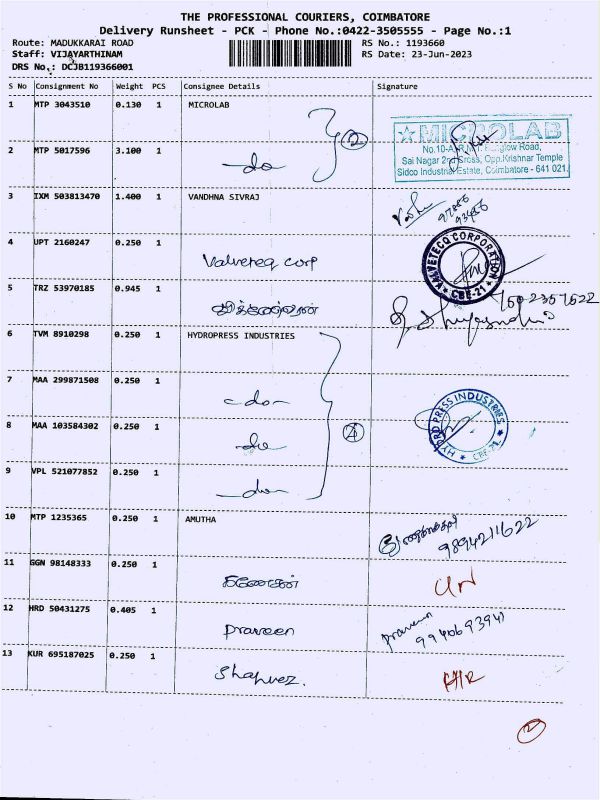 THE PROFESSIONAL COURIERS, COIMBATORE
Delivery Runsheet - PCK - Phone No.:0422-3505555 - Page No.:1
Route: MADUKKARAI ROAD RS No.: 1193660
Staff: VIJAYARTHINAM RS Date: 23-Jun-2023
DRS No.: DCJB119366001
S No Consignment No Weight PCS Consignee Details Signature
1 MTP 3043510 0.130 1 MICROLAB
2
MICROLAB
No.10-A, Road,
Sai Nagar 2nd Cross, Opp.Krishnar Temple
Sidco Industrial Estate, Coimbatore - 641 021.
2 MTP 5017596 3.100 1 -do-
3 IXM 503813470 1.400 1 VANDHNA SIVRAJ
4 UPT 2160247 0.250 1 Valveteq corp
VALVETECQ CORPORATION
CBE-21
5 TRZ 53970185 0.945 1
6 TVM 8910298 0.250 1 HYDROPRESS INDUSTRIES
7 MAA 299871508 0.250 1 -do-
8 MAA 103584302 0.250 1 do
4
HYDRO PRESS INDUSTRIES
CBE-21
9 VPL 521077852 0.250 1 -do-
10 MTP 1235365 0.250 1 AMUTHA
9894211622
11 GGN 98148333 0.250 1 கணேசன்
12 HRD 50431275 0.405 1 Praveen
praveen
9940693941
13 KUR 695187025 0.250 1
2